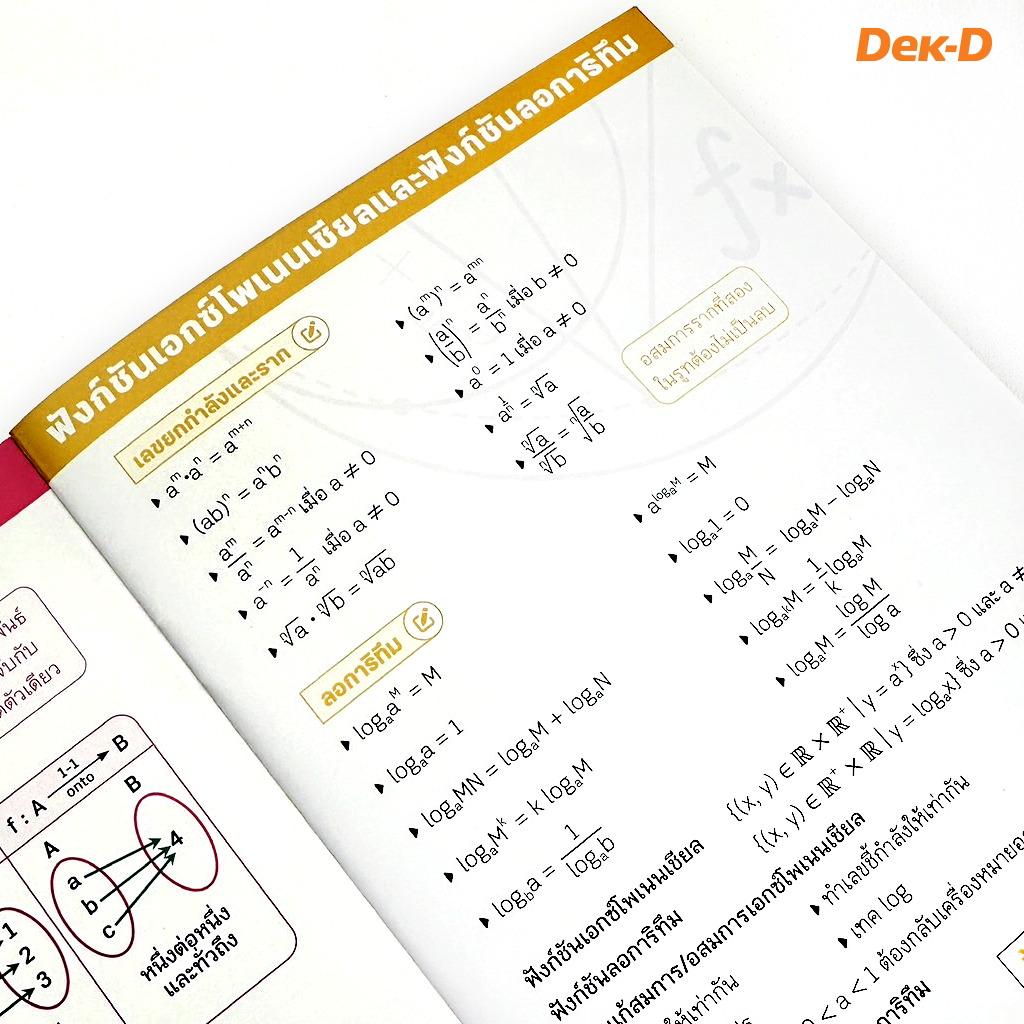 Dек-D
ฟังก์ชันเอกซ์โพเนนเชียลและฟังก์ชันลอการิทึม
เลขยกกำลังและราก
aᵐ•aⁿ = aᵐ⁺ⁿ
(ab)ⁿ = aⁿbⁿ
aᵐ/aⁿ = aᵐ⁻ⁿ เมื่อ a ≠ 0
a⁻ⁿ = 1/aⁿ เมื่อ a ≠ 0
ⁿ√a • ⁿ√b = ⁿ√ab
(aᵐ)ⁿ = aᵐⁿ
(a/b)ⁿ = aⁿ/bⁿ เมื่อ b ≠ 0
a⁰ = 1 เมื่อ a ≠ 0
a^(1/n) = ⁿ√a
ⁿ√a/ⁿ√b = ⁿ√(a/b)
อสมการรากที่สอง
ในรูทต้องไม่เป็นลบ
ลอการิทึม
logₐaᴹ = M
logₐa = 1
logₐMN = logₐM + logₐN
logₐMᵏ = k logₐM
log_b a = 1/logₐb
a^(logₐM) = M
logₐ1 = 0
logₐ M/N = logₐM − logₐN
log_(aᵏ) M = 1/k logₐM
logₐM = log M/log a
ฟังก์ชันเอกซ์โพเนนเชียล
{(x, y) ∈ ℝ × ℝ⁺ | y = aˣ} ซึ่ง a > 0 และ a ≠
ฟังก์ชันลอการิทึม
{(x, y) ∈ ℝ⁺ × ℝ | y = logₐx} ซึ่ง a > 0
แก้สมการ/อสมการเอกซ์โพเนนเชียล
ทำเลขชี้กำลังให้เท่ากัน
ให้เท่ากัน
เทค log
< a < 1 ต้องกลับเครื่องหมาย
การิทึม
fx
ตัวเดียว
f : A 1-1 onto B
A
B
a
b
c
4
หนึ่งต่อหนึ่ง
และทั่วถึง
1
2
3